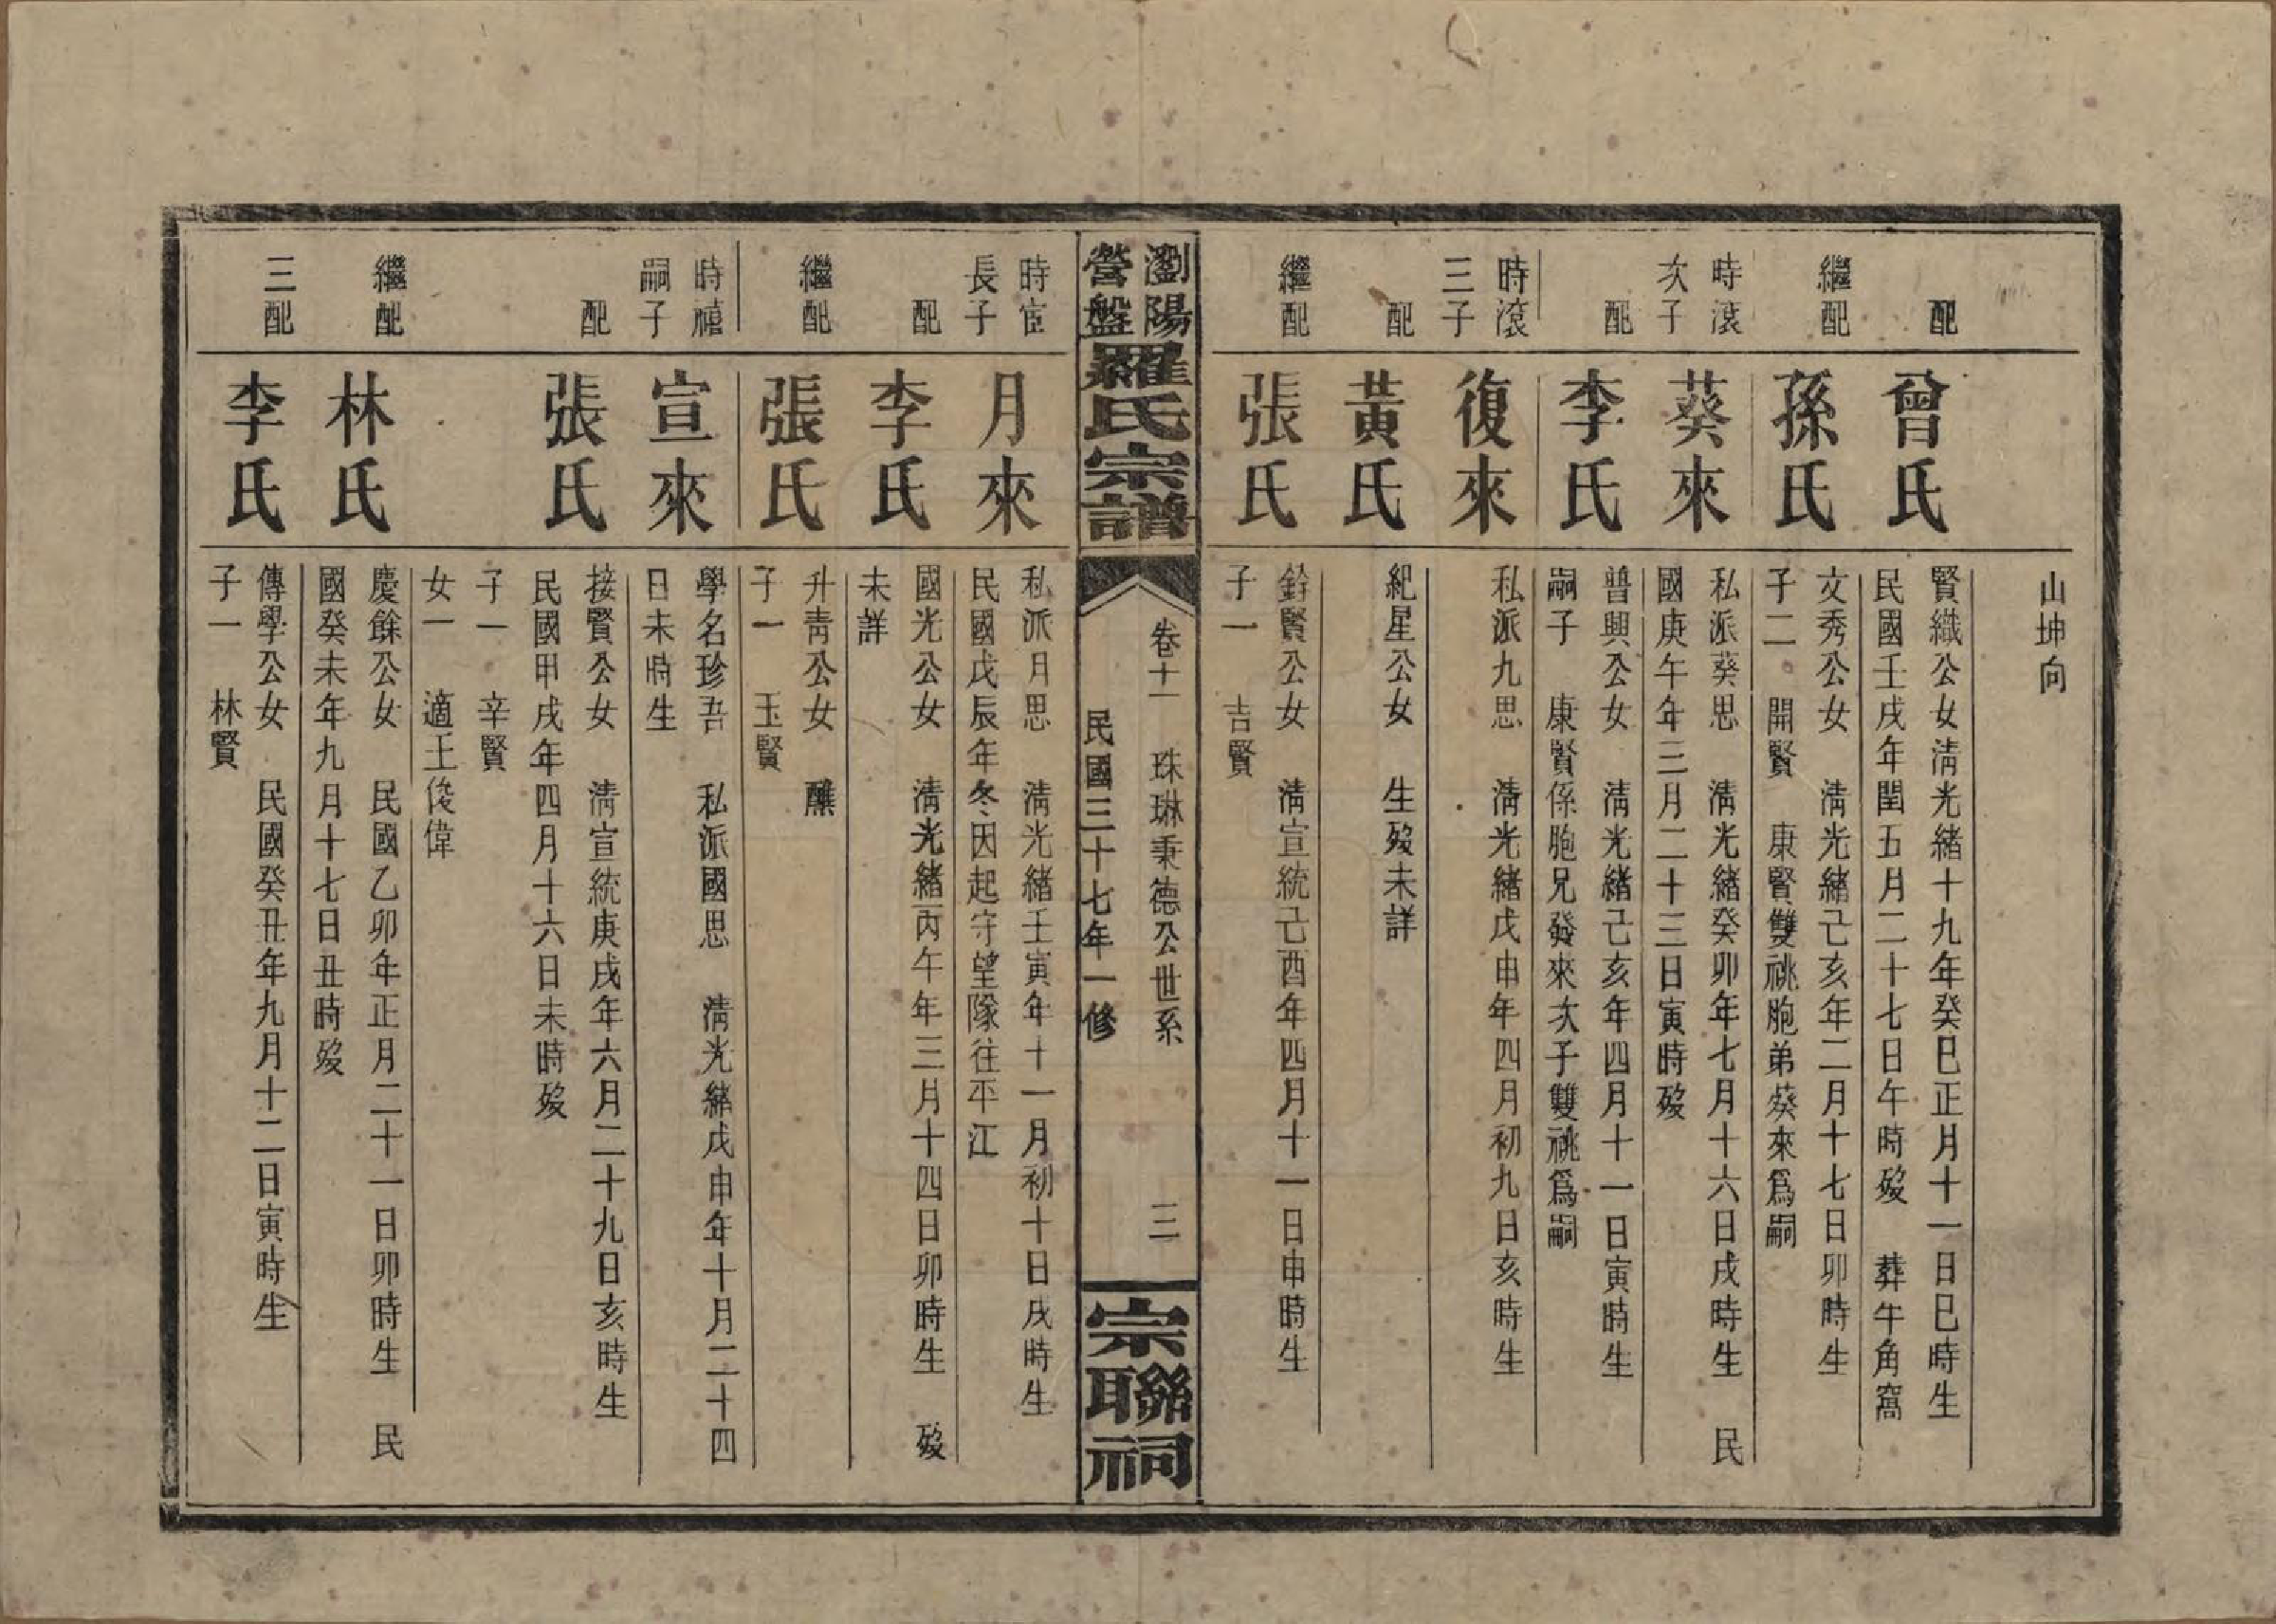 山坤向
配
曾氏
賢織公女清光緒十九年癸巳正月十一日巳時生
民國壬戌年閏五月二十七日午時歿　葬牛角窩
繼配
孫氏
文秀公女　清光緒己亥年二月十七日卯時生
子二　開賢　康賢雙祧胞弟葵來爲嗣
時滾
次子
葵來
私派葵思　清光緒癸卯年七月十六日戌時生　民
國庚午年三月二十三日寅時歿
配
李氏
普興公女　清光緒己亥年四月十一日寅時生
嗣子　康賢係胞兄發來次子雙祧爲嗣
時滾
三子
復來
私派九思　清光緒戊申年四月初九日亥時生
配
黃氏
紀星公女　生歿未詳
繼配
張氏
銓賢公女　清宣統己酉年四月十一日申時生
子一　吉賢
瀏陽
營盤
羅氏宗譜
卷十一　珠琳秉德公世系　三
民國三十七年一修
宗聯祠
時宦
長子
月來
私派月思　清光緒壬寅年十一月初十日戌時生
民國戊辰年冬因起守望隊往平江
配
李氏
國光公女　清光緒丙午年三月十四日卯時生　歿
未詳
繼配
張氏
升靑公女　醮
子一　玉賢
時禧
嗣子
宣來
學名珍吾　私派國思　清光緒戊申年十月二十四
日未時生
配
張氏
接賢公女　清宣統庚戌年六月二十九日亥時生
民國甲戌年四月十六日未時歿
子一　辛賢
女一　適王俊偉
繼配
林氏
慶餘公女　民國乙卯年正月二十一日卯時生　民
國癸未年九月十七日丑時歿
三配
李氏
傳學公女　民國癸丑年九月十二日寅時生
子一　林賢